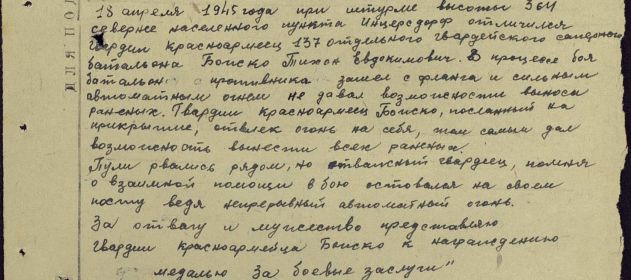 18 апреля 1945 года при штурме высоты 364
севернее населенного пункта Инцерсдорф отличился
гвардии красноармеец 137 отдельного гвардейского саперного
батальона Бойско Тихон Евдокимович. В процессе боя
батальон противника зашел с фланга и сильным
автоматным огнем не давал возможности выноса
раненых. Гвардии красноармеец Бойско, посланный на
прикрытие, отвлек огонь на себя, тем самым дал
возможность вынести всех раненых.
Пули рвались рядом, но отважный гвардеец, помня
о взаимной помощи в бою оставался на своем
посту ведя непрерывный автоматный огонь.
За отвагу и мужество представляю
гвардии красноармейца Бойско к награждению
медалью За боевые заслуги"
ДЛЯ ПОД